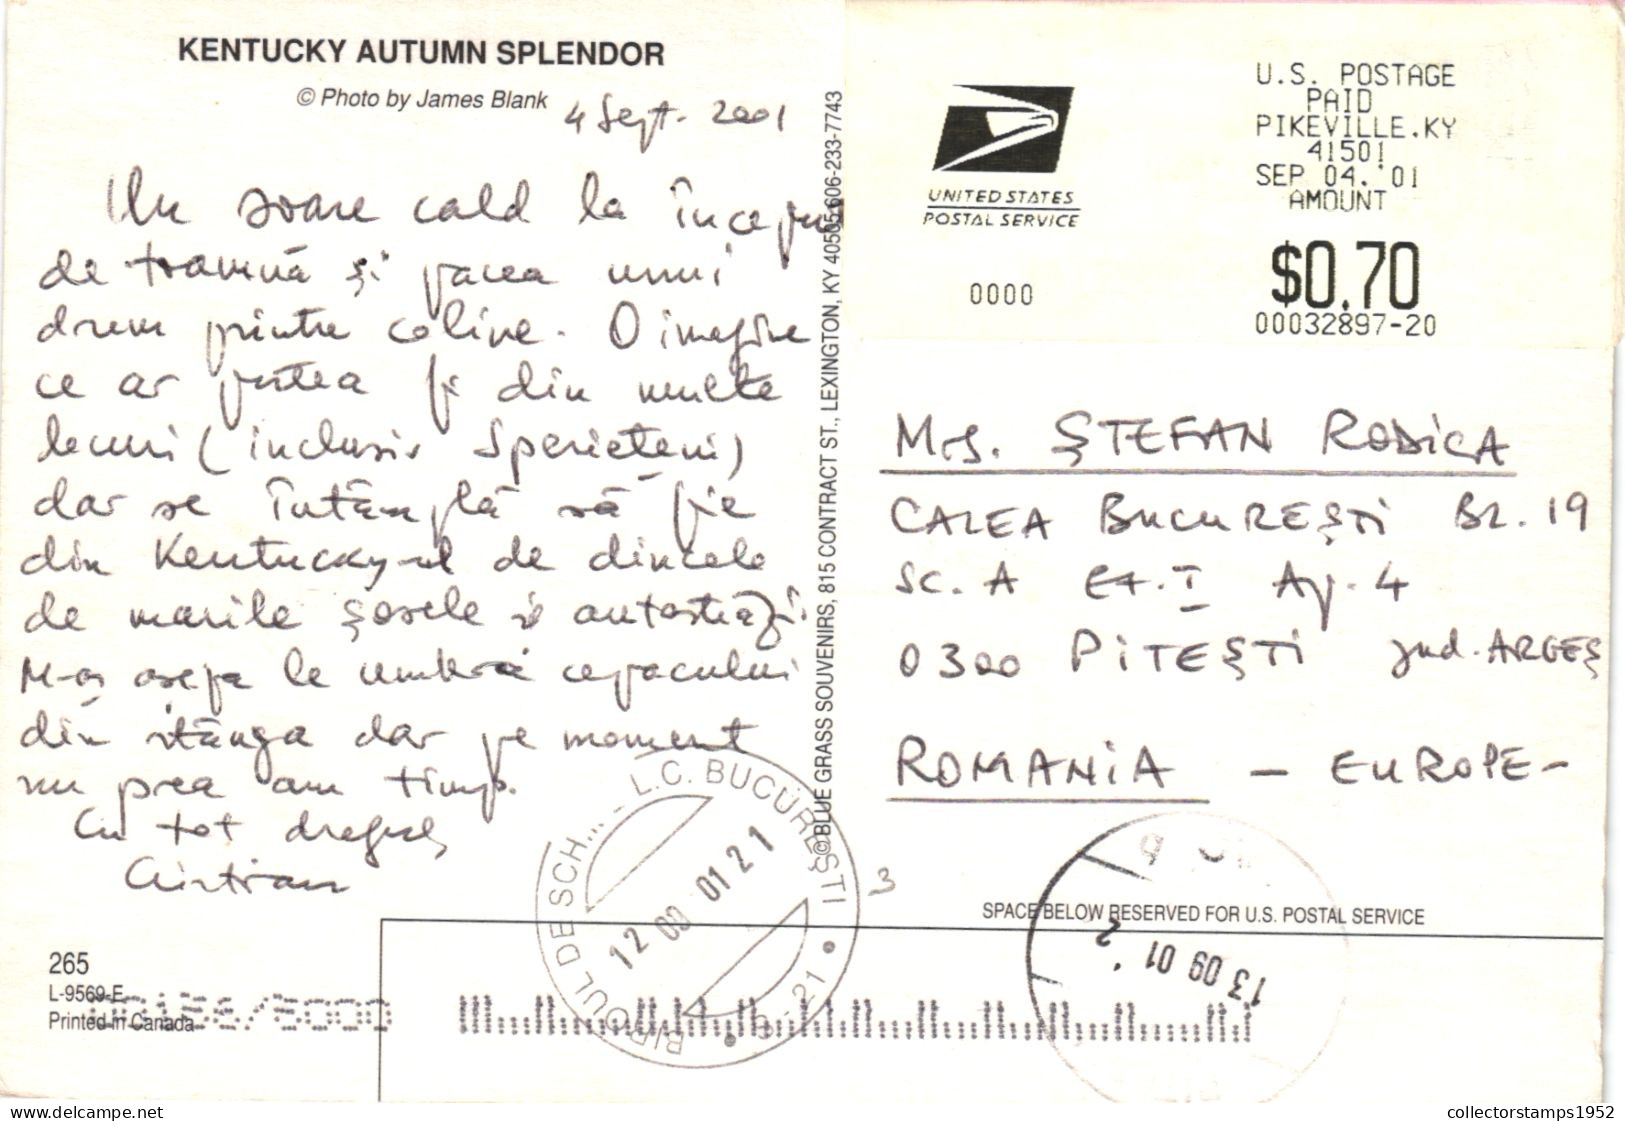 KENTUCKY AUTUMN SPLENDOR
© Photo by James Blank
4 Sept. 2001
Un soare cald la început
de toamnă și pacea unui
drum printre coline. O imagine
ce ar putea fi din multe
locuri (inclusiv Sperieteni)
dar se întâmplă să fie
din Kentucky-ul de dincolo
de marile șosele și autostrăzi.
M-aș așeza la umbra copacului
din stânga dar pe moment
nu prea am timp.
Cu tot dragul,
©BLUE GRASS SOUVENIRS, 815 CONTRACT ST., LEXINGTON, KY 40505 606-233-7743
UNITED STATES
POSTAL SERVICE
0000
U.S. POSTAGE
PAID
PIKEVILLE.KY
41501
SEP 04.'01
AMOUNT
$0.70
00032897-20
Mrs. ȘTEFAN RODICA
CALEA BUCUREȘTI BL. 19
SC. A ET. I Ap. 4
0300 PITEȘTI jud. ARGEȘ
ROMANIA - EUROPE -
BIROUL DE SCH... L.C. BUCUREȘTI
12 09 01 21
3
13 09 01
SPACE BELOW RESERVED FOR U.S. POSTAL SERVICE
265
L-9569-E
Printed in Canada
collectorstamps1952
delcampe.net